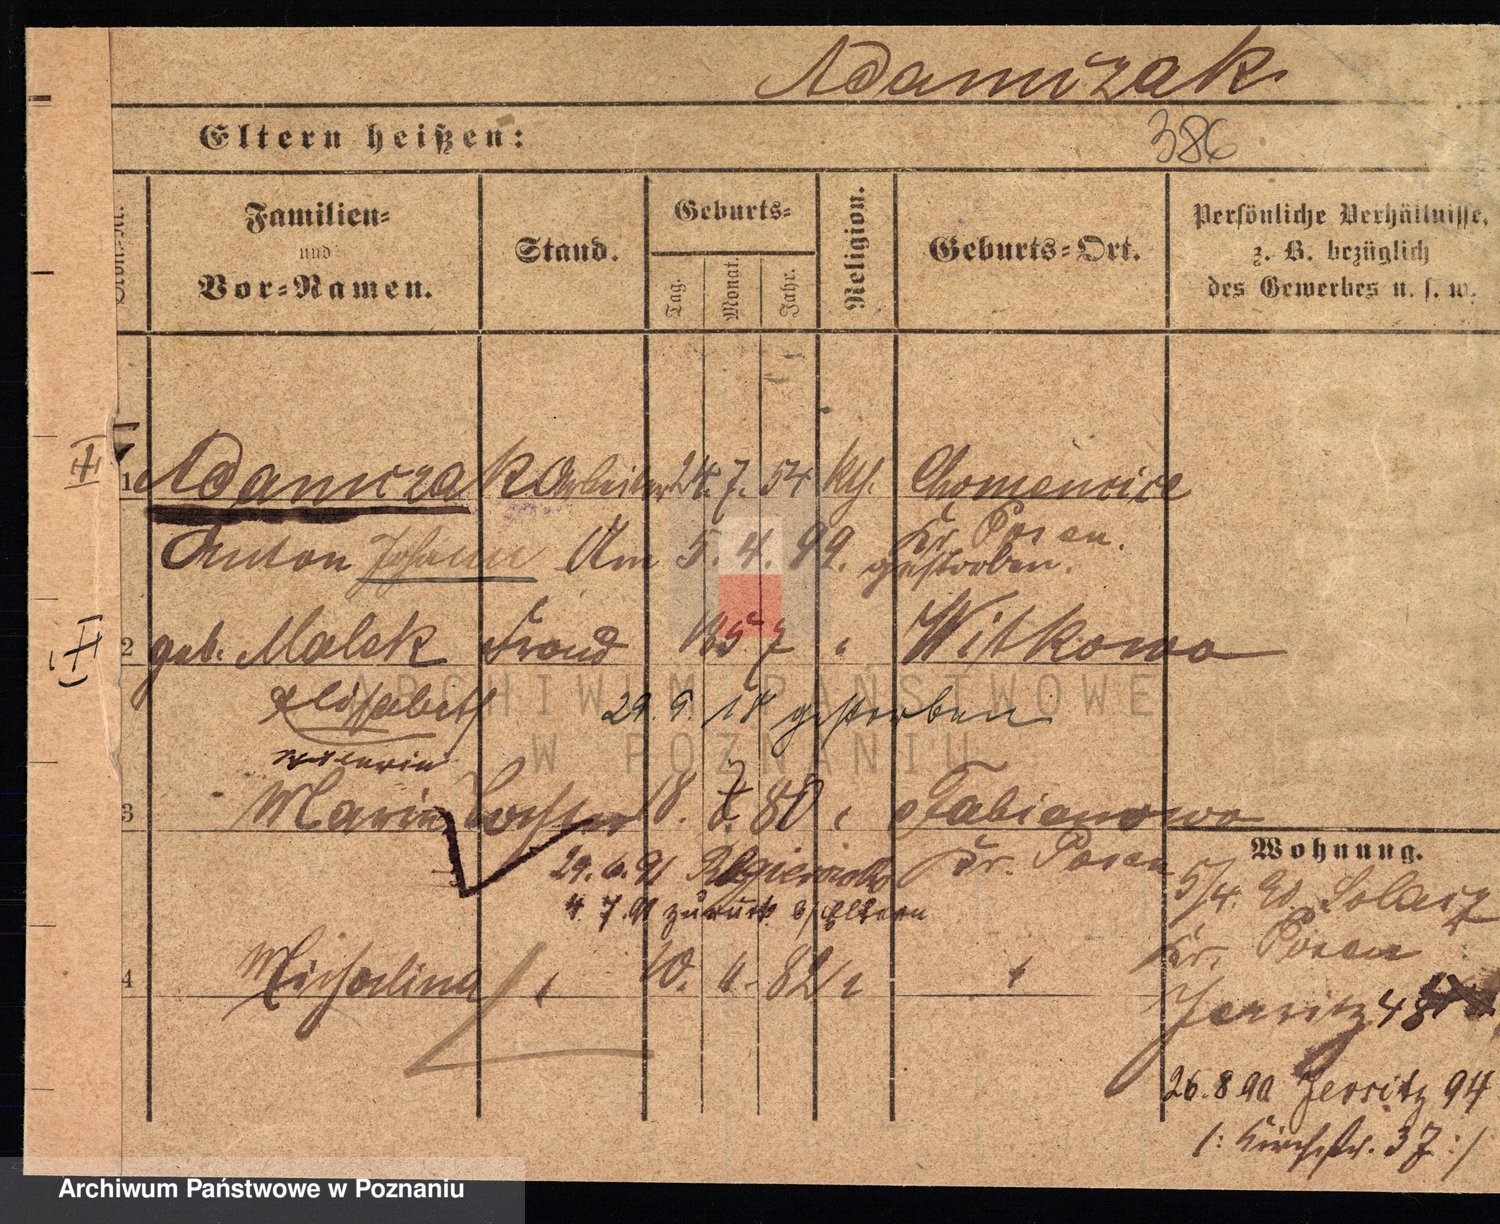 Adamczak
386
Eltern heißen:
Familien=
und
Vor=Namen.
Stand.
Geburts=
Tag.
Monat.
Jahr.
Religion.
Geburts=Ort.
Persönliche Verhältnisse,
z. B. bezüglich
des Gewerbes u. s. w.
1 Adamczak Arbeiter 24. 7. 54 kth. Chomencice
Kr. Posen.
Anton Johann Am 5. 4. 99. gestorben.
2 geb. Malek Frau 57 " Witkowo
Elisabeth 29. 9. 18 gestorben
3 Marie Tochter 18. 7. 80 " Fabianowo
Kr. Posen
29. 6. 91
4. 7. 91 zurück b/ Eltern
4 Michalina " 10. 82 " "
Wohnung.
5/4. 90. Solacz
Kr. Posen
Jersitz 48
26. 8 90 Jersitz 94
/: Kirchstr. 37 :/
ARCHIWUM PAŃSTWOWE
W POZNANIU
Archiwum Państwowe w Poznaniu